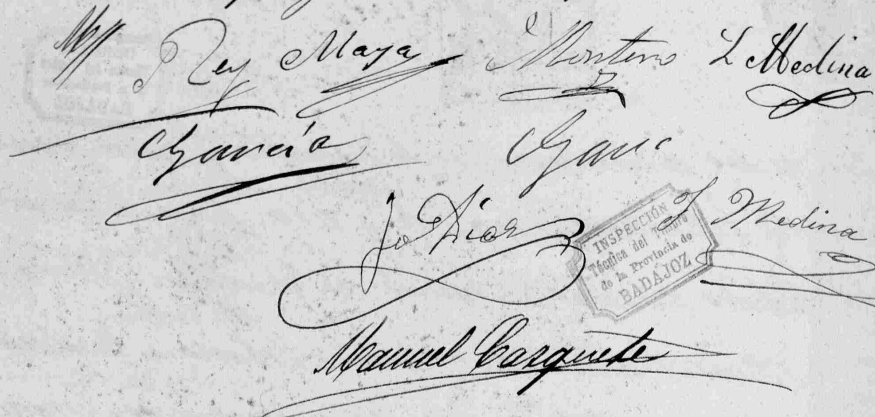 Rey Maya Montero L Medina
García Garc
Jo Díaz J Medina
INSPECCIÓN
Técnica del Timbre
de la Provincia de
BADAJOZ
Manuel Casquete